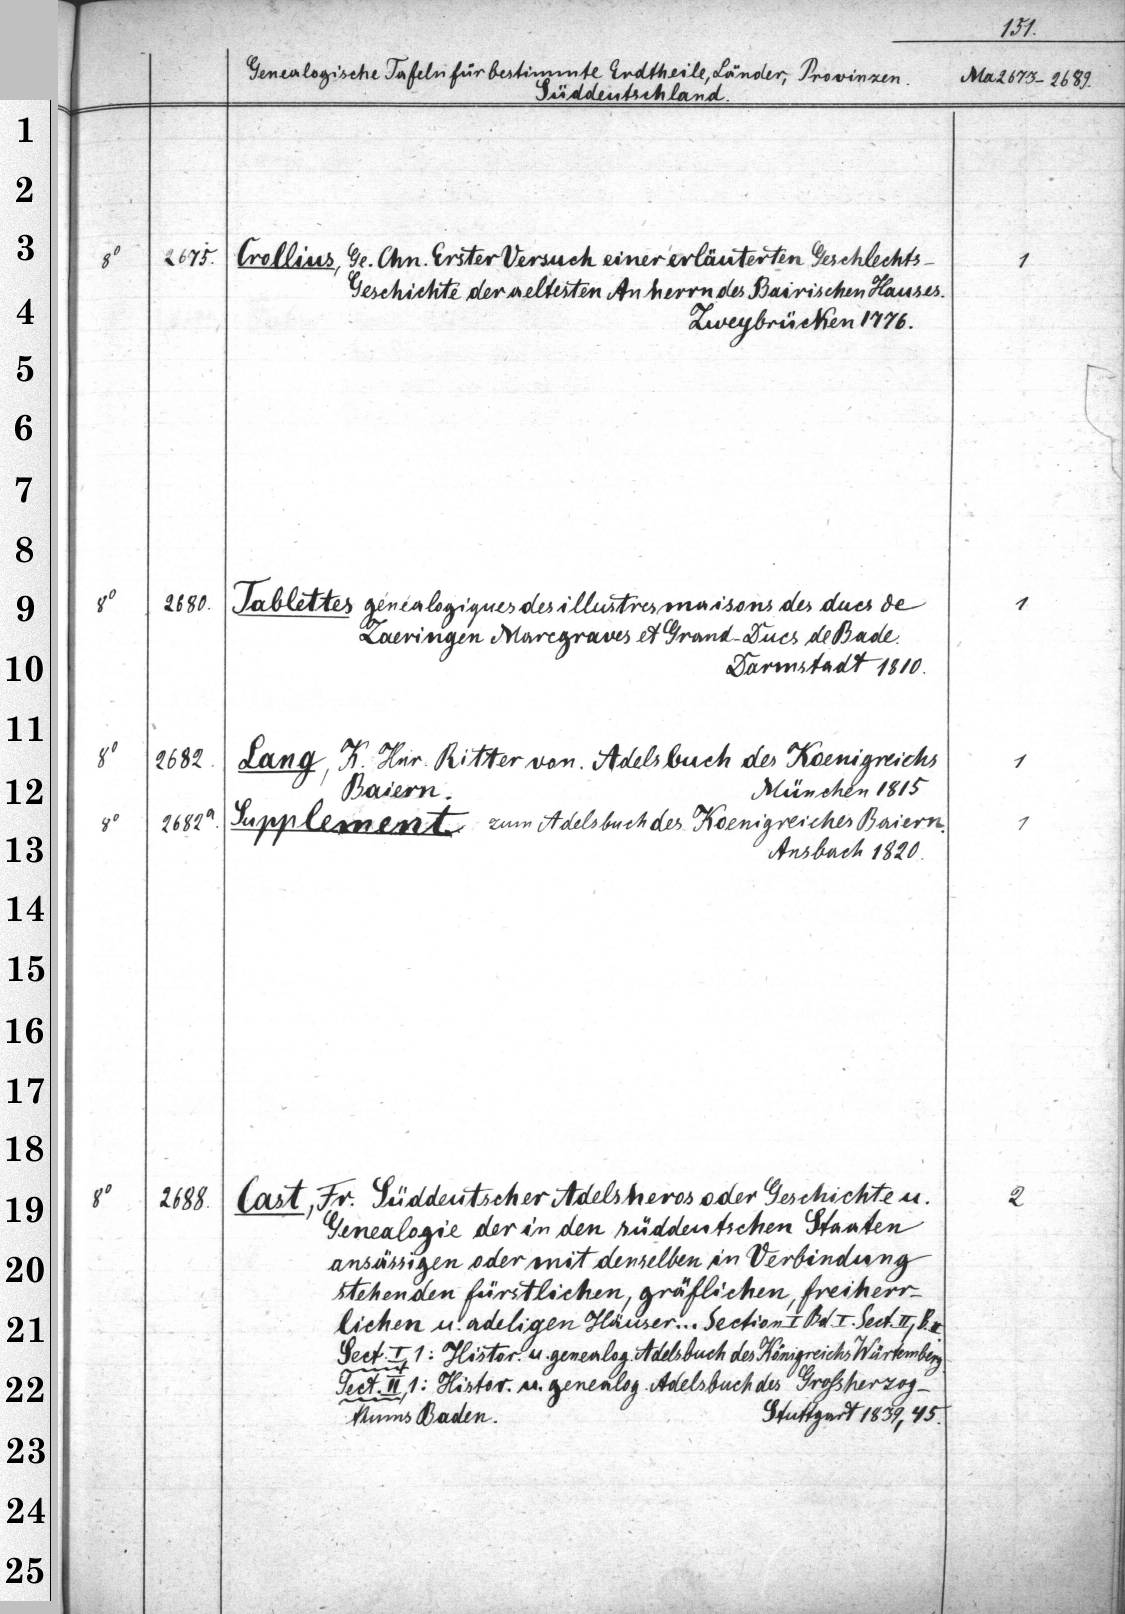 151.
Genealogische Tafeln für bestimmte Erdtheile, Länder, Provinzen. Ma 2673-2689.
Süddeutschland.
1
2
3
8° 2675. Crollius, Ge. Chn. Erster Versuch einer erläuterten Geschlechts- 1
Geschichte der aeltesten Anherrn des Bairischen Hauses.
4
Zweybrücken 1776.
5
6
7
8
9
8° 2680. Tablettes généalogiques des illustres maisons des ducs de 1
Zaeringen Marcgraves et Grand-Ducs de Bade.
10
Darmstadt 1810.
11
8° 2682. Lang, K. Hnr. Ritter von. Adelsbuch des Koenigreichs 1
12
Baiern. München 1815
8° 2682a. Supplement zum Adelsbuch des Koenigreiches Baiern. 1
13
Ansbach 1820.
14
15
16
17
18
19
8° 2688. Cast, Fr. Süddeutscher Adelsheros oder Geschichte u. 2
Genealogie der in den süddeutschen Staaten
20
ansässigen oder mit denselben in Verbindung
stehenden fürstlichen, gräflichen, freiherr-
21
lichen u. adeligen Häuser... Section I Bd I. Sect. II, B. II.
Sect. I, 1: Histor. u. genealog. Adelsbuch des Königreichs Würtemberg.
22
Sect. II, 1: Histor. u. genealog. Adelsbuch des Großherzog-
thums Baden. Stuttgart 1839, 45.
23
24
25